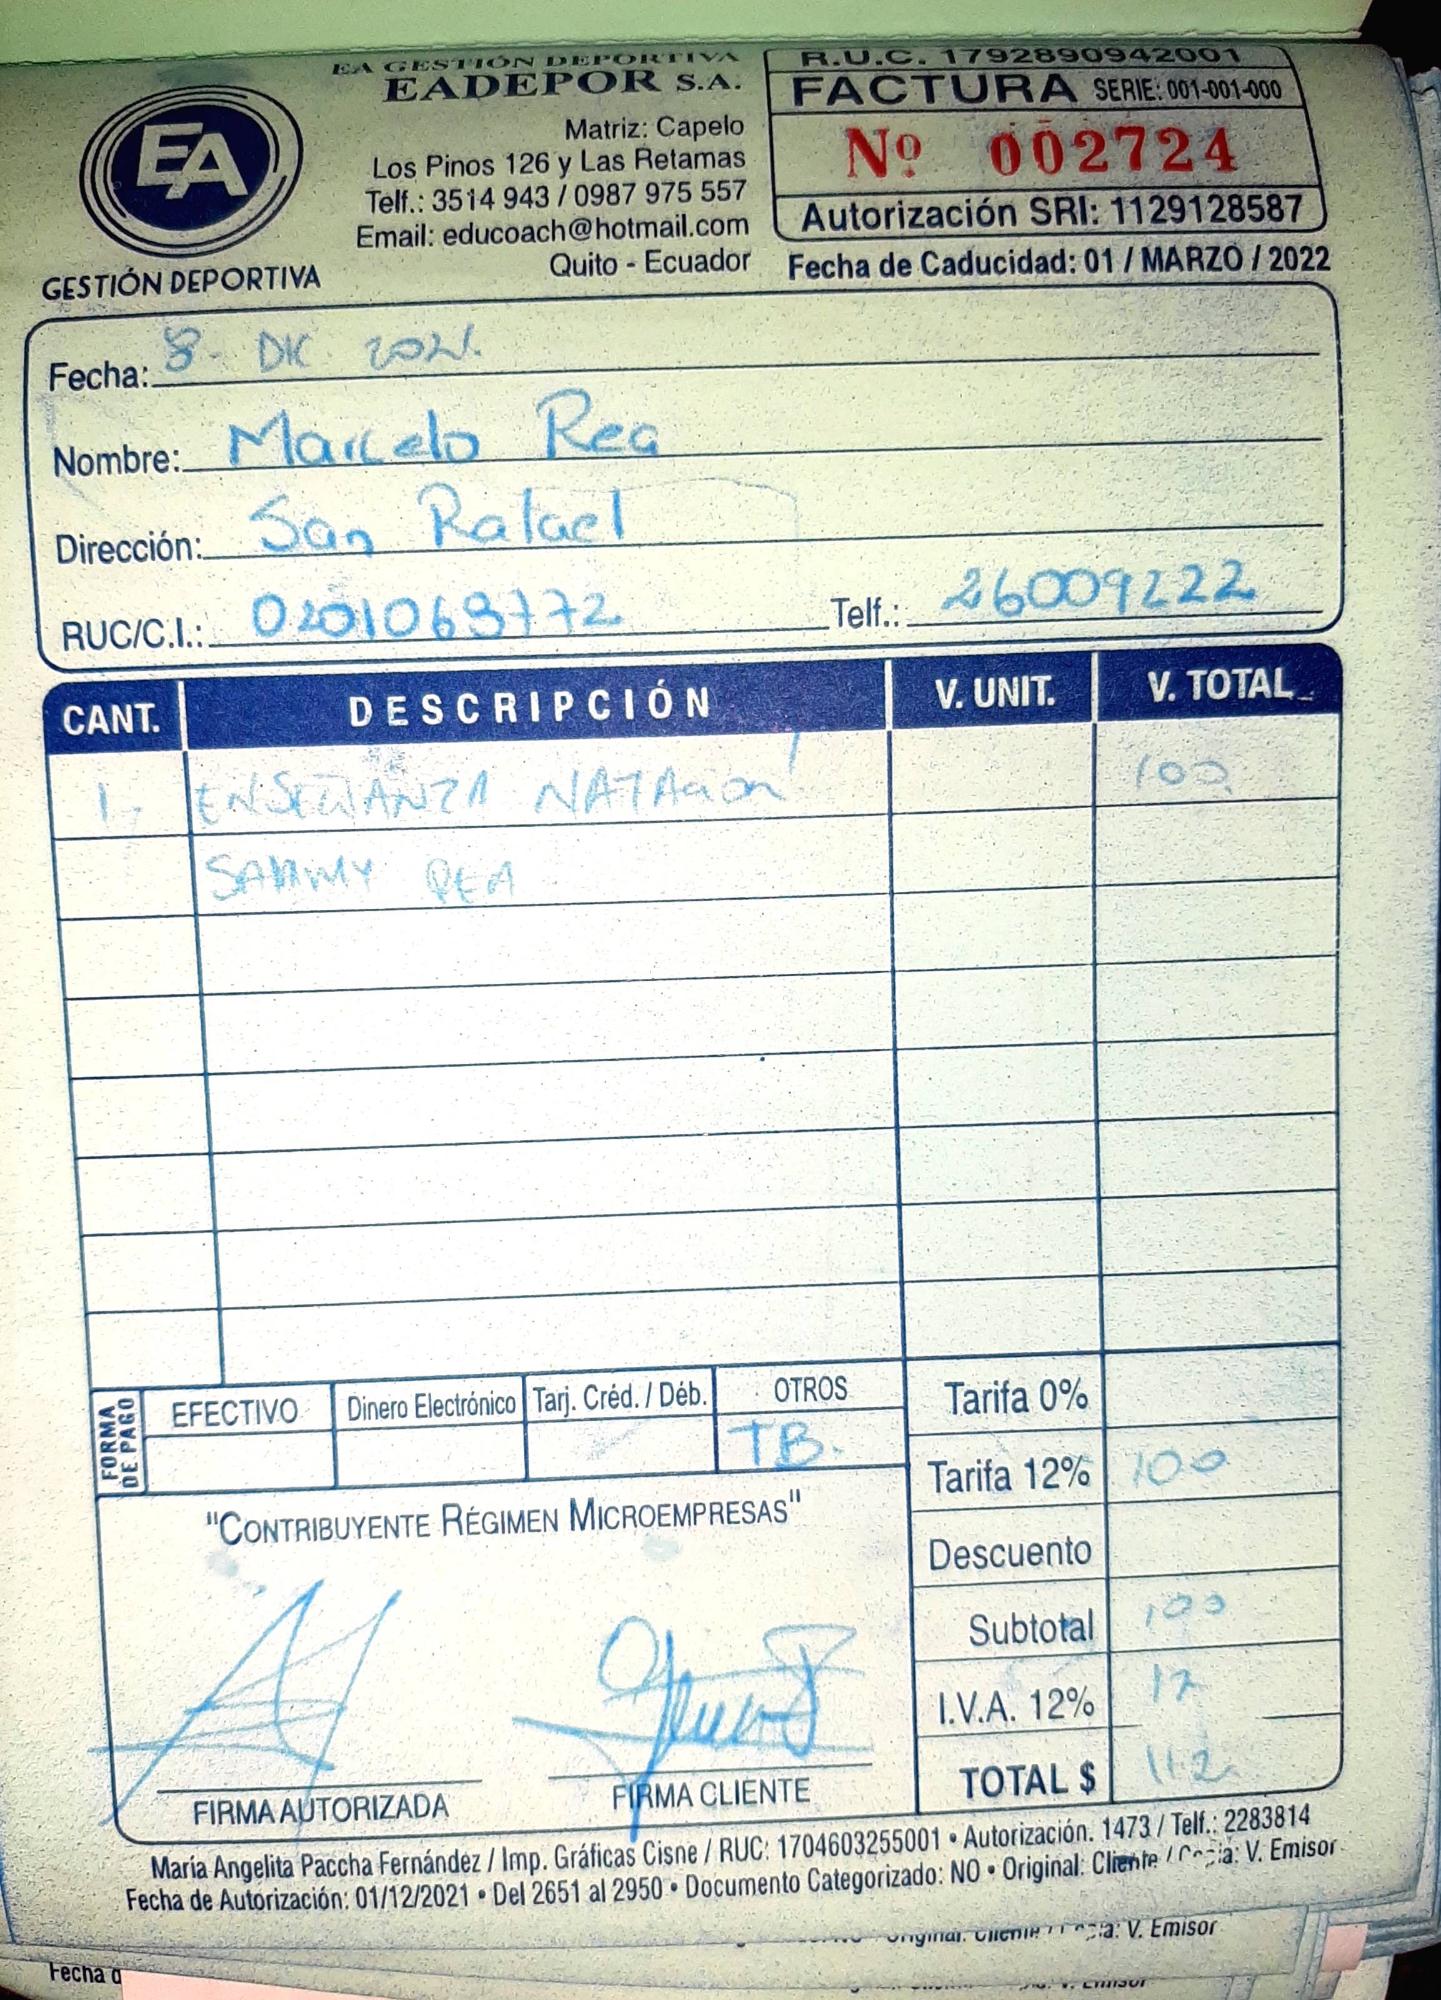 EA GESTIÓN DEPORTIVA
EADEPOR S.A.
Matriz: Capelo
Los Pinos 126 y Las Retamas
Telf.: 3514 943 / 0987 975 557
Email: educoach@hotmail.com
Quito - Ecuador
EA
GESTIÓN DEPORTIVA
R.U.C. 1792890942001
FACTURA SERIE: 001-001-000
Nº 002724
Autorización SRI: 1129128587
Fecha de Caducidad: 01 / MARZO / 2022
Fecha: 8- DIC 2021.
Nombre: Marcelo Rea
Dirección: San Rafael
RUC/C.I.: 0201069772 Telf.: 26009222
CANT. DESCRIPCIÓN V. UNIT. V. TOTAL
1,- ENSEÑANZA NATAción 100
SAMMY REA
FORMA DE PAGO
EFECTIVO Dinero Electrónico Tarj. Créd. / Déb. OTROS
TB.
Tarifa 0%
Tarifa 12% 100
Descuento
Subtotal 100
I.V.A. 12% 12
TOTAL $ 112
"CONTRIBUYENTE RÉGIMEN MICROEMPRESAS"
FIRMA AUTORIZADA FIRMA CLIENTE
María Angelita Paccha Fernández / Imp. Gráficas Cisne / RUC: 1704603255001 • Autorización. 1473 / Telf.: 2283814
Fecha de Autorización: 01/12/2021 • Del 2651 al 2950 • Documento Categorizado: NO • Original: Cliente / Copia: V. Emisor
Original: Cliente / Copia: V. Emisor
Fecha d
V. Emisor